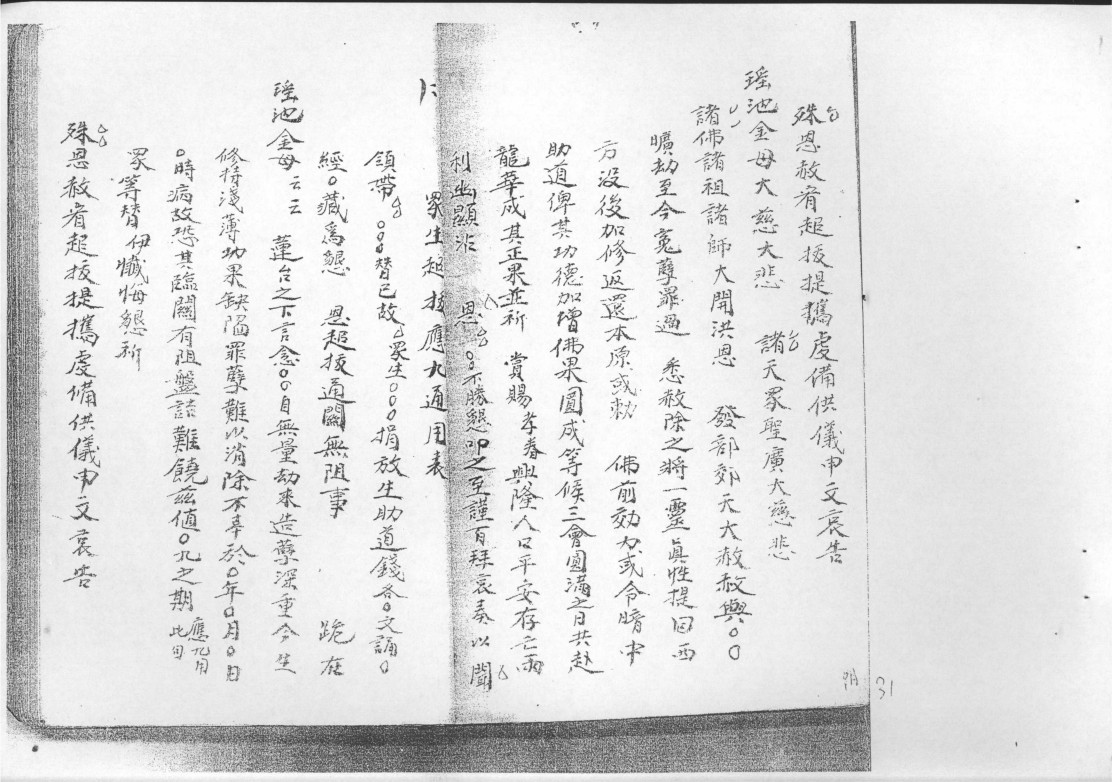 殊恩赦宥超拔提攜虔備供儀申文哀告
瑶池金母大慈大悲 諸天眾聖廣大慈悲
諸佛諸祖諸師大開洪恩 發部郊天大赦赦與○○
曠劫至今冤孽罪過 悉赦除之將一靈真性提回西
方没後加修返還本原或勅 佛前効力或令暗中
助道俾其功德加增佛果圓成等候三會圓滿之日共赴
龍華成其正果並祈 賞賜孝眷興隆人口平安存亡兩
利幽顯沾 恩○不勝懇叩之至謹百拜哀奏以聞
眾生超拔應九通用表
領帶 ○○○替已故眾生○○○捐放生助道錢各○文誦○
經○藏為懇 恩超拔通關無阻事 跪在
瑶池金母云云 蓮台之下言念○○自無量劫來造孽深重今生
修持淺薄功果缺陷罪孽難以消除不幸於○年○月○日
○時病故恐其臨關有阻盤詰難饒兹值○九之期 應九用此句
眾等替伊懺悔懇祈
殊恩赦宥超拔提攜虔備供儀申文哀告
31